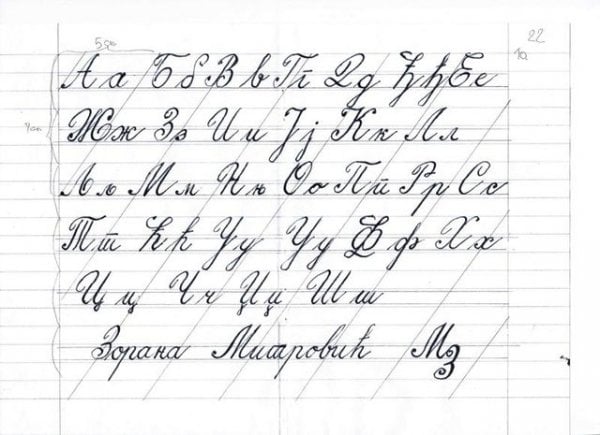 22
А а Б б В в Г г Д д Ђ ђ Е е
Ж ж З з И и Ј ј К к Л л
Љ љ М м Н њ О о П п Р р С с
Т т Ћ ћ У у У у Ф ф Х х
Ц ц Ч ч Џ џ Ш ш
Зорана Митровић Мз